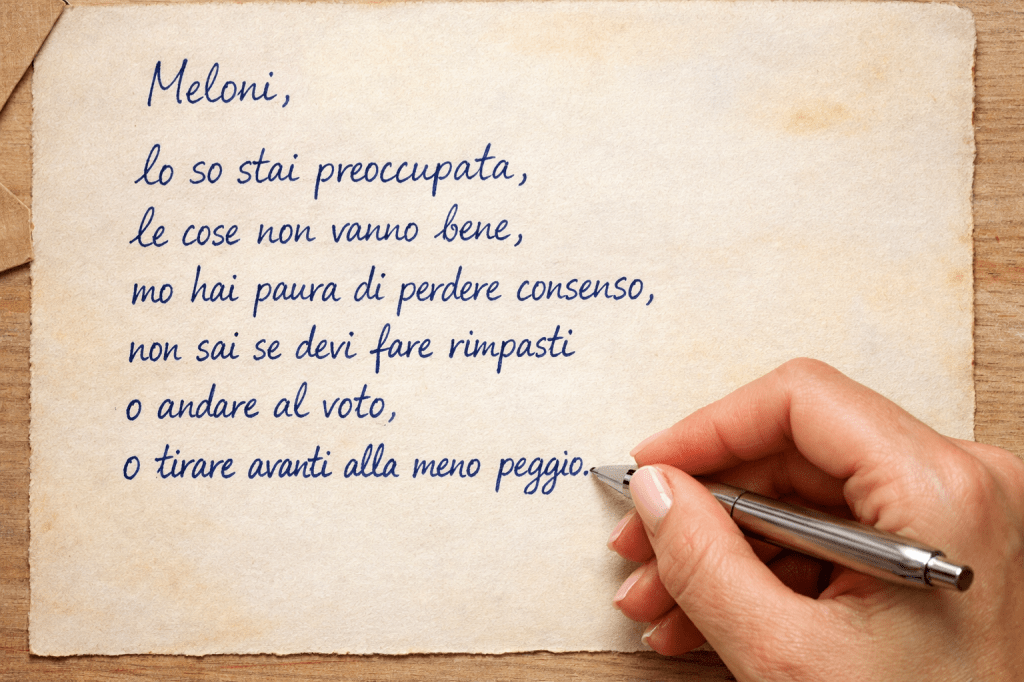 Meloni,
lo so stai preoccupata,
le cose non vanno bene,
mo hai paura di perdere consenso,
non sai se devi fare rimpasti
o andare al voto,
o tirare avanti alla meno peggio.